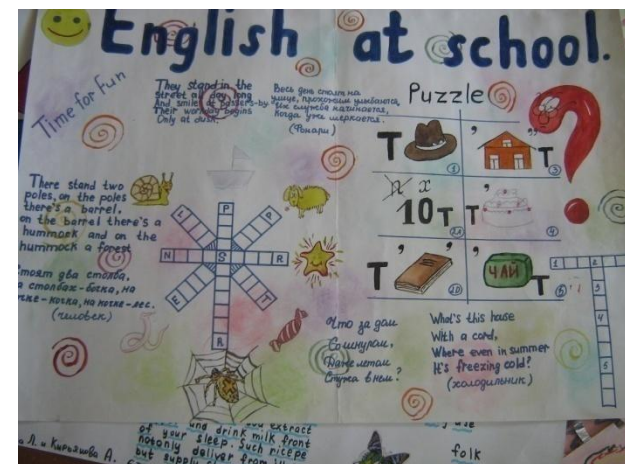 English at school.
Time for fun
They stand in the
street all day long
And smile at passers-by
Their work day begins
Only at dusk.
Весь день стоят на
улице, прохожим улыбаются,
Их служба начинается,
Когда уже смеркается.
(Фонари)
Puzzle
T
1
,
,,
T
3
n x
10T
T
,
4
T
,
,
ЧАЙ
T
There stand two
poles, on the poles
there's a barrel,
on the barrel there's a
hummock and on the
hummock a forest
Стоят два столба,
на столбах-бочка, на
бочке-кочка, на кочке-лес.
(человек)
P
N S R
E T
R
1 2
3
4
5
Что за дом
Со шнуром,
Даже летом
Стужа в нем?
What's this house
With a cord,
Where even in summer
It's freezing cold?
(холодильник)
and extract
of your sleep. Such ricepe
and drink milk front
notonly deliver from
but supply
Л. и Кирьянова А.
folk